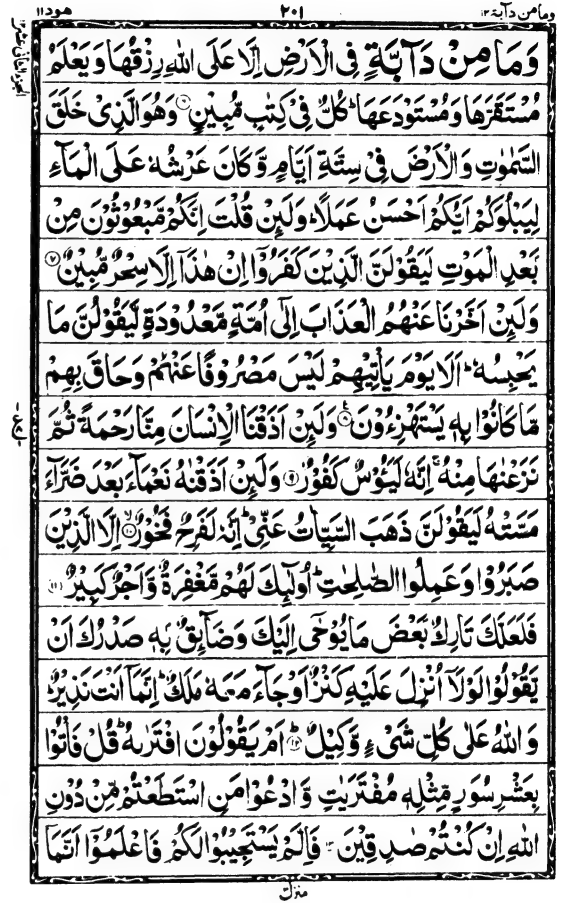 ومامن دآبة ١٢ ٢٠١ هود ١١
وَمَا مِنْ دَآبَّةٍ فِى الْاَرْضِ اِلَّا عَلَى اللّٰهِ رِزْقُهَا وَيَعْلَمُ
مُسْتَقَرَّهَا وَمُسْتَوْدَعَهَا ؕ كُلٌّ فِىْ كِتٰبٍ مُّبِيْنٍ ۝۶ وَهُوَ الَّذِىْ خَلَقَ
السَّمٰوٰتِ وَالْاَرْضَ فِىْ سِتَّةِ اَيَّامٍ وَّكَانَ عَرْشُهٗ عَلَى الْمَآءِ
لِيَبْلُوَكُمْ اَيُّكُمْ اَحْسَنُ عَمَلًا ؕ وَلَئِنْ قُلْتَ اِنَّكُمْ مَّبْعُوْثُوْنَ مِنْۢ
بَعْدِ الْمَوْتِ لَيَقُوْلَنَّ الَّذِيْنَ كَفَرُوْۤا اِنْ هٰذَاۤ اِلَّا سِحْرٌ مُّبِيْنٌ ۝۷
وَلَئِنْ اَخَّرْنَا عَنْهُمُ الْعَذَابَ اِلٰٓى اُمَّةٍ مَّعْدُوْدَةٍ لَّيَقُوْلُنَّ مَا
يَحْبِسُهٗ ؕ اَلَا يَوْمَ يَاْتِيْهِمْ لَيْسَ مَصْرُوْفًا عَنْهُمْ وَحَاقَ بِهِمْ
مَّا كَانُوْا بِهٖ يَسْتَهْزِءُوْنَ ۝۸ وَلَئِنْ اَذَقْنَا الْاِنْسَانَ مِنَّا رَحْمَةً ثُمَّ
نَزَعْنٰهَا مِنْهُ ۚ اِنَّهٗ لَيَـُٔوْسٌ كَفُوْرٌ ۝۹ وَلَئِنْ اَذَقْنٰهُ نَعْمَآءَ بَعْدَ ضَرَّآءَ
مَسَّتْهُ لَيَقُوْلَنَّ ذَهَبَ السَّيِّاٰتُ عَنِّىْ ؕ اِنَّهٗ لَفَرِحٌ فَخُوْرٌ ۝۱۰ اِلَّا الَّذِيْنَ
صَبَرُوْا وَعَمِلُوا الصّٰلِحٰتِ ؕ اُولٰٓئِكَ لَهُمْ مَّغْفِرَةٌ وَّاَجْرٌ كَبِيْرٌ ۝۱۱
فَلَعَلَّكَ تَارِكٌۢ بَعْضَ مَا يُوْحٰٓى اِلَيْكَ وَضَآئِقٌۢ بِهٖ صَدْرُكَ اَنْ
يَّقُوْلُوْا لَوْلَاۤ اُنْزِلَ عَلَيْهِ كَنْزٌ اَوْ جَآءَ مَعَهٗ مَلَكٌ ؕ اِنَّمَاۤ اَنْتَ نَذِيْرٌ ؕ
وَاللّٰهُ عَلٰى كُلِّ شَىْءٍ وَّكِيْلٌ ۝۱۲ اَمْ يَقُوْلُوْنَ افْتَرٰىهُ ؕ قُلْ فَاْتُوْا
بِعَشْرِ سُوَرٍ مِّثْلِهٖ مُفْتَرَيٰتٍ وَّادْعُوْا مَنِ اسْتَطَعْتُمْ مِّنْ دُوْنِ
اللّٰهِ اِنْ كُنْتُمْ صٰدِقِيْنَ ۝۱۳ فَاِلَّمْ يَسْتَجِيْبُوْا لَكُمْ فَاعْلَمُوْۤا اَنَّمَاۤ
منزل